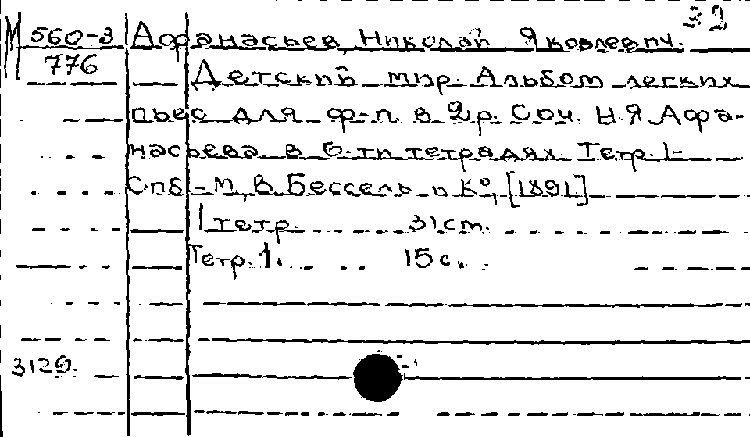 32
М 560-3 Афанасьев, Николай Яковлевич.
776 Детский мир. Альбом легких
пьес для ф-п в 2р. Соч. Н.Я Афа-
насьева в 6-ти тетрадях. Тетр. 1-
Спб - М, В. Бессель и Кº, [1891]
1 тетр. 31 см.
Тетр. 1. 15 с.